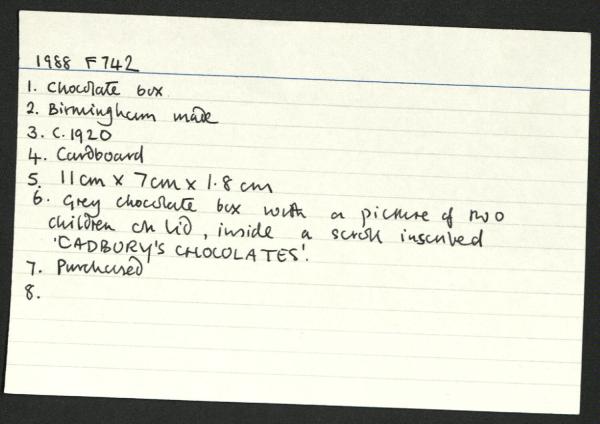 1988 F742
1. Chocolate box
2. Birmingham made
3. C.1920
4. Cardboard
5. 11cm x 7cm x 1.8 cm
6. Grey chocolate box with a picture of two
children on lid, inside a scroll inscribed
'CADBURY'S CHOCOLATES'.
7. Purchased
8.